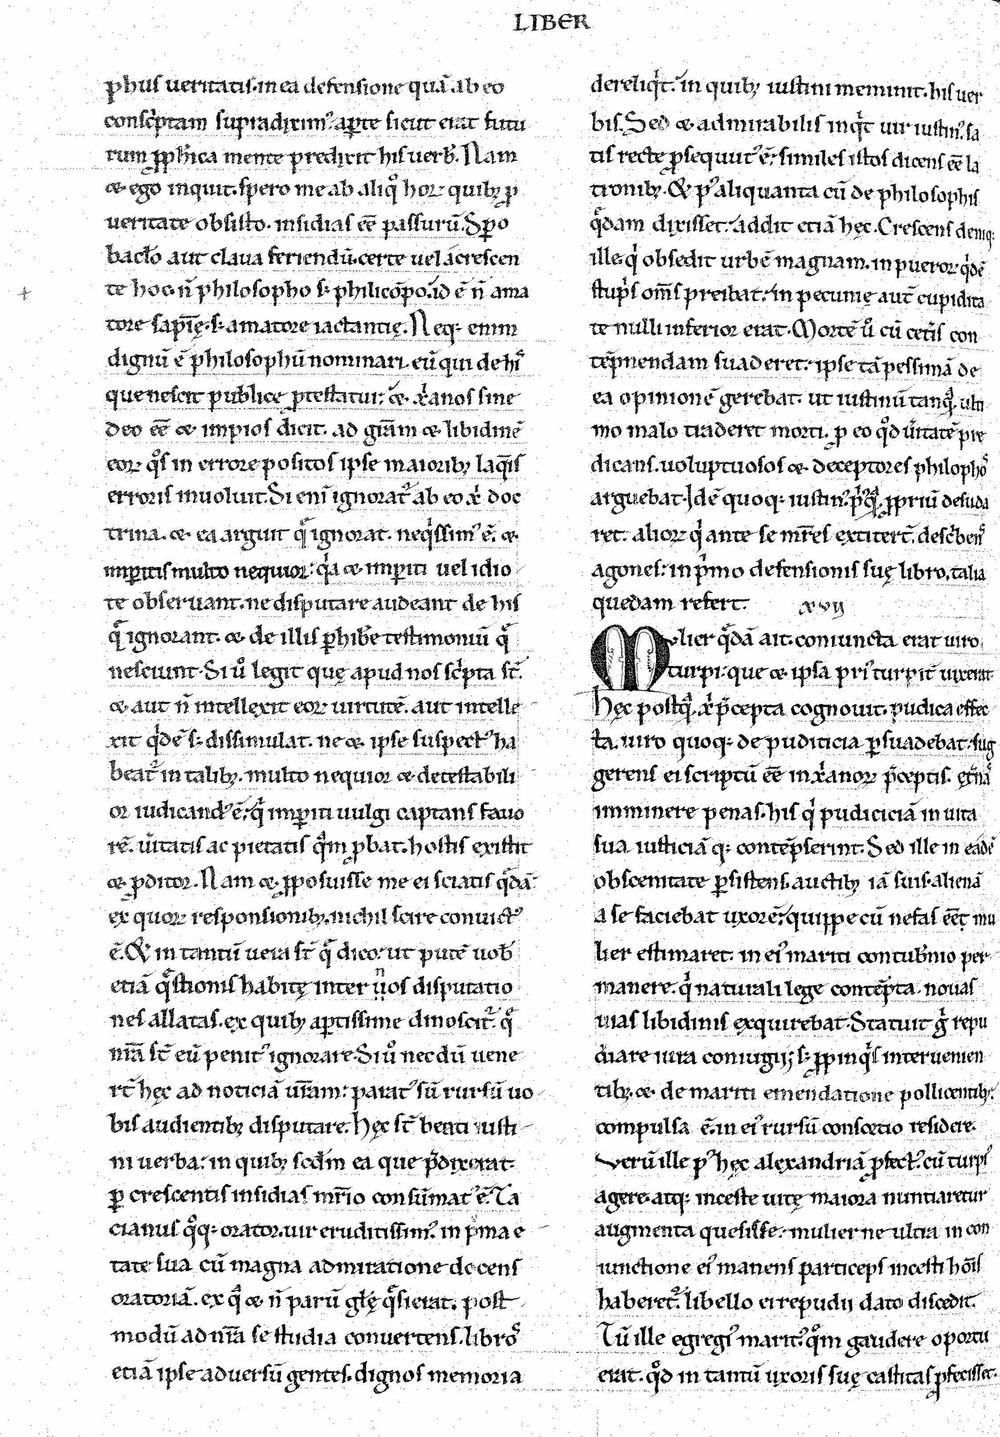 LIBER
phus ueritatis. in ea defensione quā ab eo
consc̓ptam supradiximꝰ. aꝑte sicut erat futu
rum ꝓph̓ica mente predixit his uerb̓. Nam
⁊ ego inquit. spero me ab aliq̊ horꝝ quibꝫ ꝓ
ueritate obsisto. insidias eē passurū. Sꝑo
bacl̓o aut claua feriendū. certe uel a crescen
te hoc. n̄ philosopho s; philicōpo. id ē n̄ ama
tore sapīę. s; amatore iactantię. Neq; enim
dignū ē philosophū nominari. eū qui de hiˢ
que nescit publice ꝓtestatur; ⁊ xr̄anos sine
deo eē ⁊ impios dicit. ad gr̄am ⁊ libidinē
eorꝝ q̊s in errore positos ipse maioribꝫ laq̄is
erroris inuoluit. Si enī ignoratᷣ ab eo xp̄i doc
trina. ⁊ ea arguit q̄ ignorat. neq̓ssimꝰ ē. ⁊
imꝑitis multo nequior: q̓a ⁊ imꝑiti uel idio
te obseruant. ne disputare audeant de his
q̄ ignorant. ⁊ de illis ꝑhibe̓ testimoniū q̄
nesciunt. Si u̓o legit que apud nos sc̓pta st̄.
⁊ aut n̄ intellexit eorꝝ uirtutē. aut intelle
xit q̓dē s; dissimulat. ne ⁊ ipse suspectꝰ ha
beatᷣ in talibꝫ. multo nequior ⁊ detestabili
or iudicandꝰ ē. q̓ imꝑiti uulgi captans fauo
rē. ūitatis ac pietatis q̄m ꝓbat. hostis existit
⁊ ꝓditor. Nam ⁊ ꝓposuisse me ei sciatis q̄dā
ex quorꝝ responsionibꝫ. nichil scire conuictꝰ
ē. Et in tantū uera st̄ q̄ dico. ut putē uob̓
etiā q̄stionis habitę inter nos disputatio
nes allatas. ex quibꝫ aꝑtissime dinoscitᷣ. q̄
nr̄a st̄ eū penitꝰ ignorare. Si u̓o necdū uene
rt̄ hęc ad noticiā ur̄am: paratꝰ sū rursū uo
bis audientibꝫ disputare. Hęc st̄ beati iusti
ni uerba: in quibꝫ scd̄m ea que p̄dixerat.
ꝑ crescentis insidias mr̄io consūmatꝰ ē. Ta
cianus q̊q; orator. uir eruditissimꝰ. in p̓ma e
tate sua cū magna admiratione docens
oratoriā. ex q̄ ⁊ n̄ parū gl̄ę q̄sierat. post
modū ad nr̄a se studia conuertens. libroˢ
etiā ipse aduersū gentes. dignos memoria
dereliq̓t. in quibꝫ iustini meminit. his uer
bis. Sed ⁊ admirabilis inq̓t uir iustinꝰ. sa
tis recte ꝓsequutꝰ ē. similes istos dicens eē la
tronibꝫ. Et pꝰ aliquanta cū de philosophis
q̄dam dixisset. addit etiā hęc. Crescens deniq;
ille. q̓ obsedit urbē magnam. in puerorꝝ q̓dē
stup̓s om̄s preibat. in pecunię aut̄ cupidita
te nulli inferior erat. Mortē u̓o cū cet̓is con
tēpnendam suaderet. ipse tā pessimā de
ea opinionē gerebat. ut iustinū tanq̄. ulti
mo malo traderet morti. ꝓ eo q̊d ūitatē pre
dicans. uoluptuosos ⁊ deceptores philosophoˢ
arguebat. Idē quoq; iustinꝰ. p̓usq̄ ꝓpriū desuda
ret. aliorꝝ q̓ ante se mr̄es extitert̄. desc̓benˢ
agones. in p̓mo defensionis suę libro. talia
quedam refert. xvij
Mulier q̄dā ait. coniuncta erat uiro
turpi. que ⁊ ipsa priꝰ turpit̓ uixerat.
Hęc postq̄ xp̄i p̄cepta cognouit. pudica effec
ta. uiro quoq; de pudicicia ꝑsuadebat. sug
gerens ei scriptū eē in xr̄anorꝝ p̄ceptis. ęt̓nas
imminere penas. his q̓ pudiciciā in uita
sua iusticiā q; contēpserint. Sed ille in eadē
obscenitate ꝑsistens. auctibꝫ iā suis. alienā
a se faciebat uxorē. quippe cū nefas eēt mu
lier estimaret. in eiꝰ mariti contub̓nio per
manere. q̓ naturali lege contēpta. nouas
uias libidinis exquirebat. Statuit g̊ repu
diare iura coniugij; s; ꝓpinq̓s interuenien
tibꝫ. ⁊ de mariti emendatione pollicentibꝫ.
compulsa ē. in eiꝰ rursū consortio residere.
Verū ille pꝰ hęc alexandriā ꝓfectꝰ. cū turpiˢ
agere. atq; inceste uitę maiora nuntiaretur
augmenta quesisse. mulier ne ultra in con
iunctione eiꝰ manens particeps incesti hoīs
haberetᷣ. libello ei repudii dato discedit.
Tū ille egregiꝰ maritꝰ. q̄m gaudere oportu
erat. q̊d in tantū uxoris suę castitas ꝓfecisset.